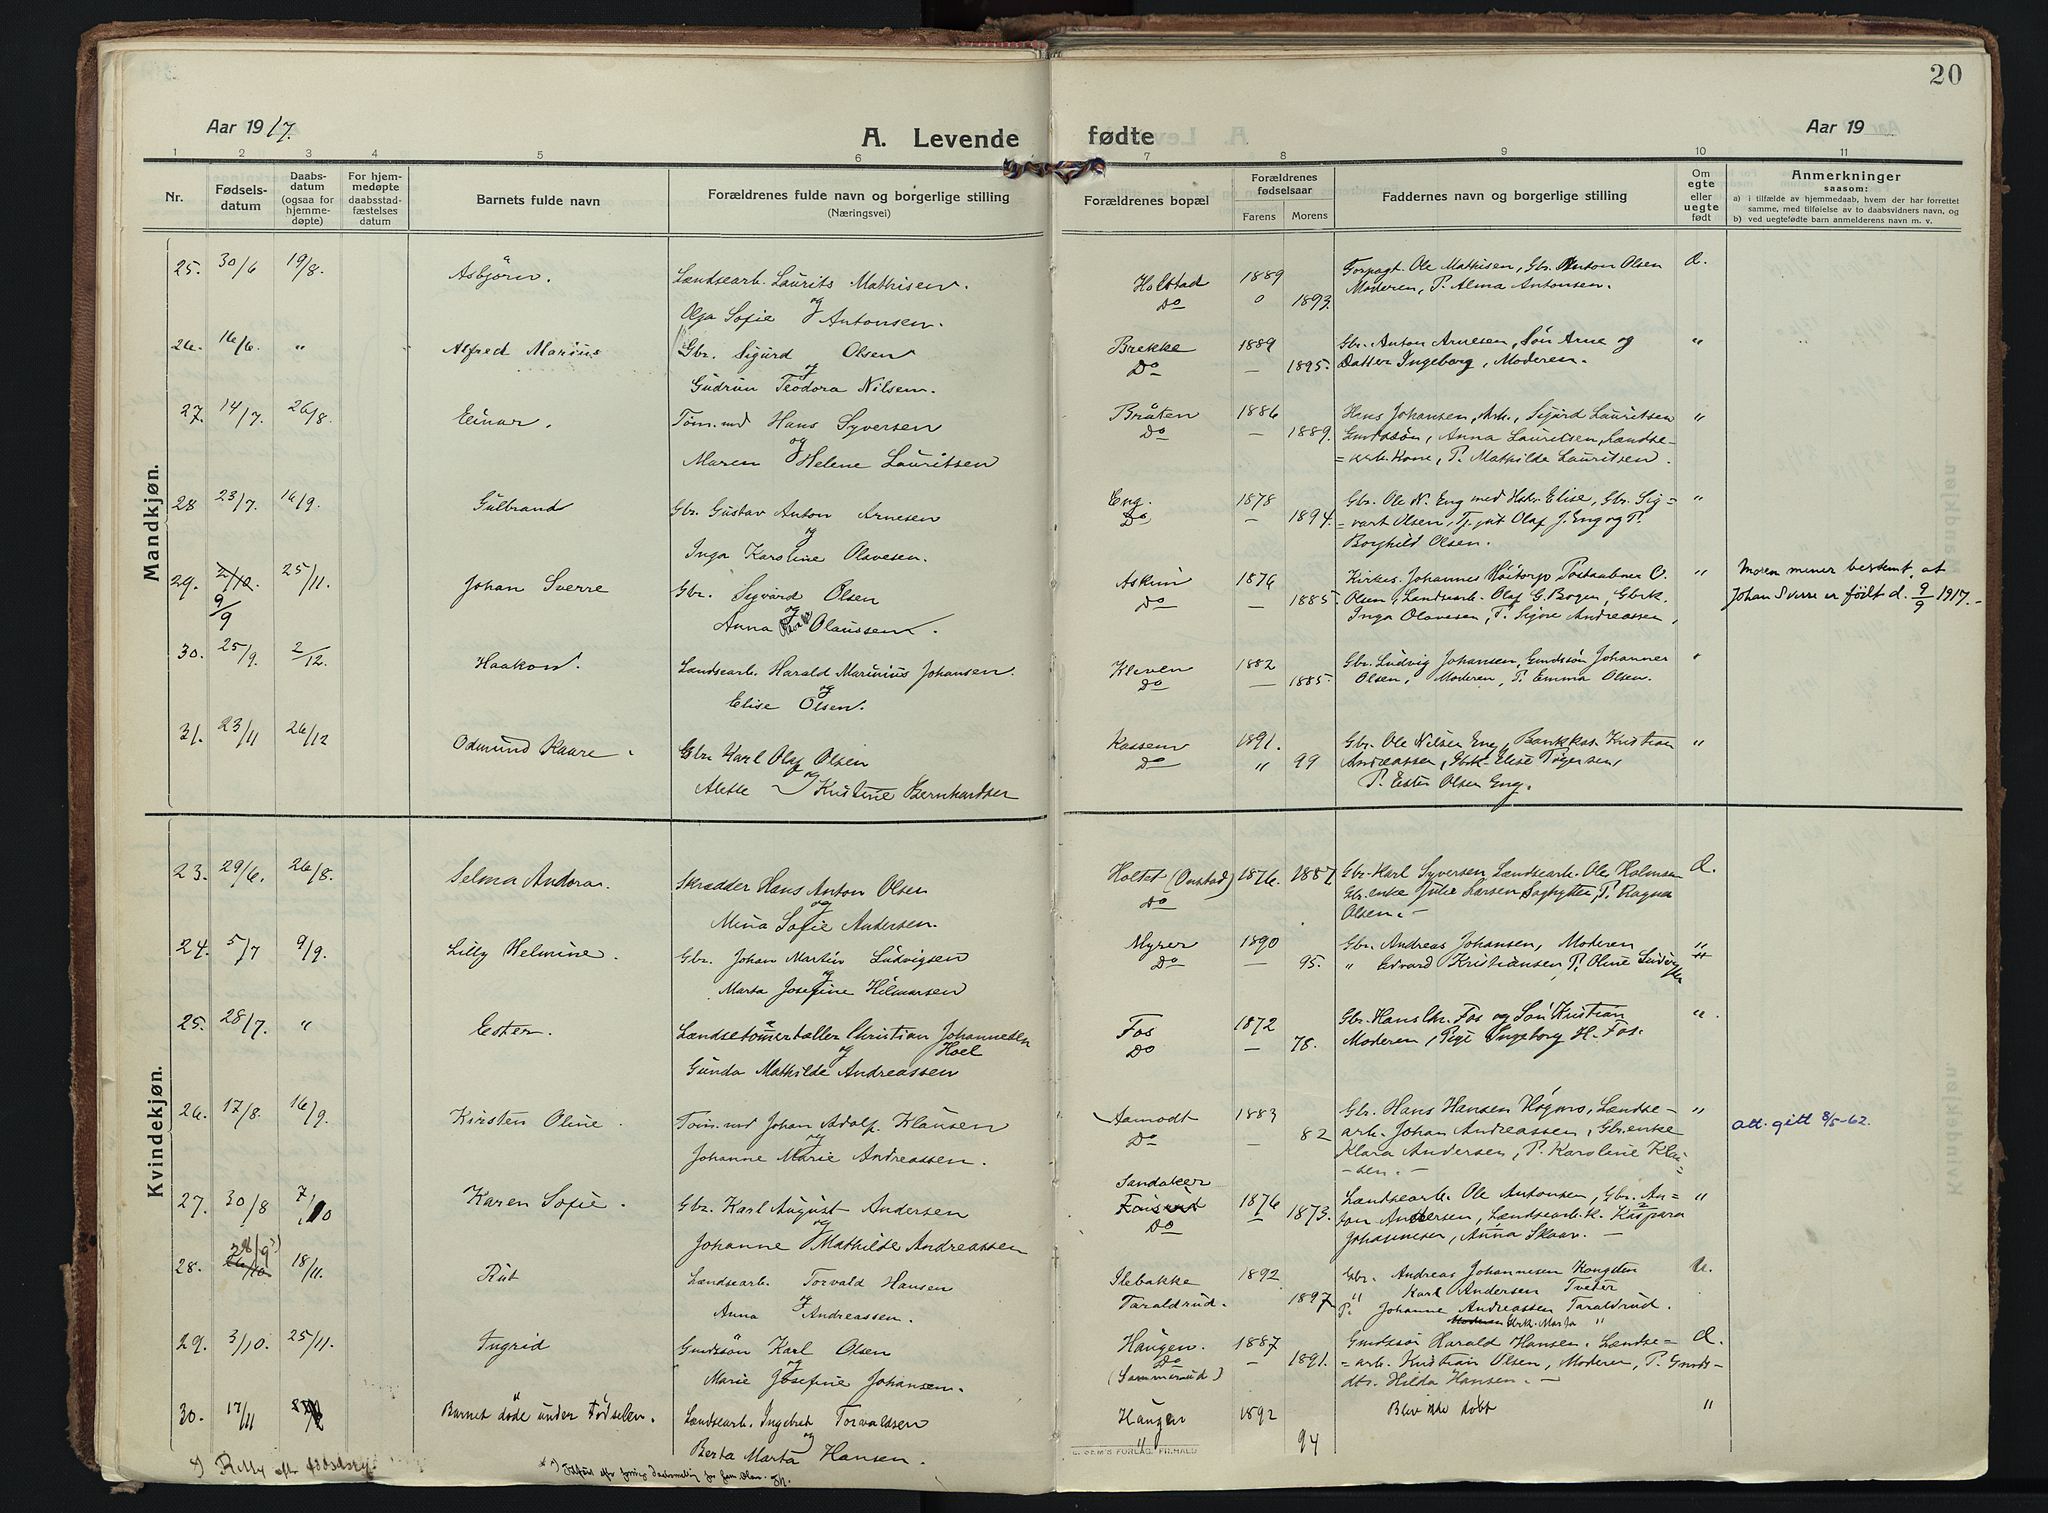 20
Aar 1917.
A. Levende fødte
Aar 19
1 2 3 4 5 6 7 8 9 10 11
Nr.
Fødsels-
datum
Daabs-
datum
(ogsaa for
hjemme-
døpte)
For hjem-
medøpte
daabsstad-
fæstelses
datum
Barnets fulde navn
Forældrenes fulde navn og borgerlige stilling
(Næringsvei)
Forældrenes bopæl
Forældrenes
fødselsaar
Farens Morens
Faddernes navn og borgerlige stilling
Om
egte
eller
uegte
født
Anmerkninger
saasom:
a) i tilfælde av hjemmedaab, hvem der har forrettet
samme, med tilføielse av to daabsvidners navn, og
b) ved uegtefødte barn anmelderens navn m. v.
Mandkjøn.
25. 30/6 19/8. Asbjörn. Landsearb. Laurits Mathisen. Holstad 1889 Forpagt. Ole Mathisen, Gbr. Anton Olsen
og Do 1893. Moderen, P. Alma Antonsen.
Olga Sofie Antonsen.
26. 16/6. " Alfred Marius Gbr. Sigurd Olsen Brekke 1889 Gbr. Anton Arnesen, Søn Arne og "
og Do — 1895. Datter Ingeborg, Moderen.
Gudrun Teodora Nilsen.
27. 14/7. 26/8. Einar. Töm.md Hans Syversen Bråten 1886 Hans Johansen, Arb., Sigurd Lauritsen "
og Do — 1889. Gaardssön, Anna Lauritsen, Landse-
Maren Helene Lauritsen =arb. Kone, P. Mathilde Lauritsen.
28 23/7. 16/9. Gulbrand Gbr. Gustav Anton Arnesen Eng. 1878 Gbr. Ole N. Eng med Hstr. Elise, Gbr. Sig= "
og Do — 1894. =vart Olsen, Tj.jut Olaf J. Eng og P.
Inga Karoline Olavesen. Borghild Olsen.
29. 2/10. 25/11. Johan Sverre Gbr. Sigvard Olsen Askim 1876 Kirkes. Johannes Höitorp Postaabner O. " Moren mener bestemt, at
9/9 og Do — 1885. Olsen, Landsearb. Olaf G. Bogen, Gbrk. Johan Sverre er født d. 9/9 1917.—
Anna Olaussen. Inga Olavesen, P. Signe Andreassen,
30. 25/9. 2/12. Haakon. Landsearb. Harald Marinius Johansen. Kleven 1882 Gbr. Ludvig Johansen, Gaardssön Johannes "
og Do — 1885. Olsen, Moderen, P. Emma Olsen.
Elise Olsen.
31. 23/11 26/12 Odmund Kaare. Gbr. Karl Olaf Olsen Kassem 1891. Gbr. Ole Nilsen Eng, Bankkas. Kristian "
og Do " 99 Andreassen, Gbrk. Elise Tögersen,
Alette Kristine Bernhardsen P. Ester Olsen Eng.
Kvindekjøn.
23. 29/6. 26/8. Selma Andora. Skrædder Hans Anton Olsen Holtet (Onstad) 1876. 1887. Gbr. Karl Syversen Landsearb. Ole Kolmsen
og Do Gbr. enke Julie Larsen Saghytten, P. Ragna
Mina Sofie Andersen. Olsen.—
24. 5/7 9/9. Lilly Helmine. Gbr. Johan Martin Ludvigsen Myrer 1890 Gbr. Andreas Johansen, Moderen "
og Do 95. " Edvard Kristiansen, P. Oline
Marta Josefine Hilmarsen
25. 28/7. " Ester. Landsetömertæller Christian Johannesen Fos 1872 Gbr. Hans Chr. Fos og Søn Kristian "
og Hoel Do — 78. Moderen, Pige Ingeborg H. Fos.
Gunda Mathilde Andreassen
26. 17/8. 16/9. Kirsten Oline. Töm.md Johan Adolf Klausen Aamodt 1883 Gbr. Hans Hansen Høgmo, Landse- " att. gitt 8/5-62.
og Do — 82 arb. Johan Andreassen, Gbr.enke
Johanne Marie Andreassen. Klara Andersen, P. Karoline Klau=
=sen.—
27. 30/8 7/10 Karen Sofie. Gbr. Karl August Andersen Sandaker 1876 Landsearb. Ole Antonsen, Gbr. An= "
og Do — 1873. ton Andersen, Landsearb.k. Kaspara
Johanne Mathilde Andreassen Johannesen, Anna Skaar.—
28. 28/9 ?) 26/10. 18/11. Rut Landsearb. Torvald Hansen Ilebakke 1892 Gbr. Andreas Johannesen Kongsten U.
og Taraldrud. 1897 " Karl Andersen Tveter
Anna Andreassen. P. Johanne Andreassen Taraldrud.
Moderen Gbrk. Marja "
29. 3/10. 25/11. Ingrid Gaardssön Karl Olsen Haugen. 1887 Gaardssön Harald Hansen, Landse=
og Do — 1891. =arb. Kristian Olsen, Moderen, P. Gaards-
Marie Josefine Johansen. (Sommerud) dtr. Hilda Hansen.—
30. 17/11 Barnet döde under Fødselen. Landsearb. Ingebret Torvaldsen Haugen 1892 Blev ikke døbt "
og " 94
Berta Marta Hansen.
E. SEM'S FORLAG, FR.HALD